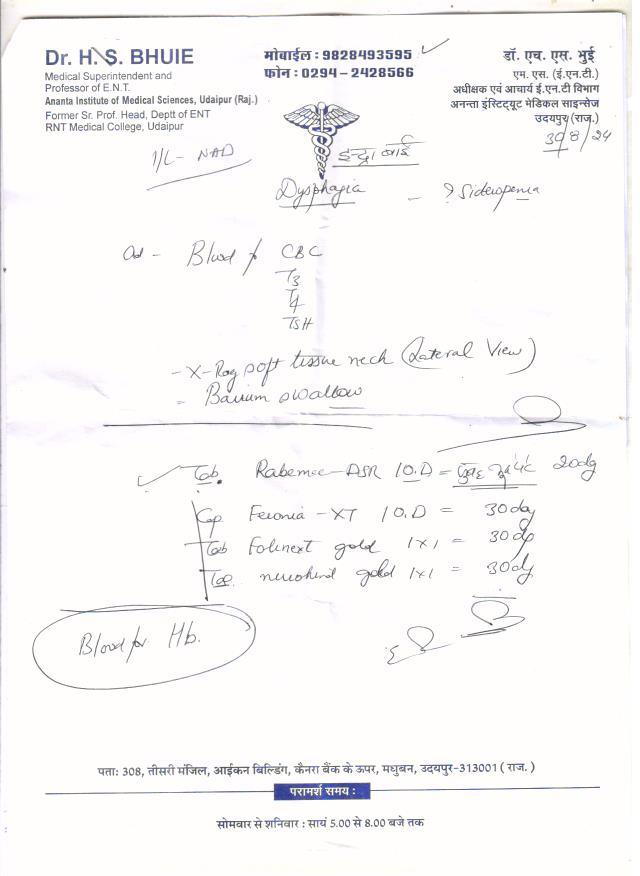 Dr. H. S. BHUIE
Medical Superintendent and
Professor of E.N.T.
Ananta Institute of Medical Sciences, Udaipur (Raj.)
Former Sr. Prof. Head, Deptt of ENT
RNT Medical College, Udaipur
मोबाईल : 9828493595
फोन : 0294 - 2428566
डॉ. एच. एस. भुई
एम. एस. (ई.एन.टी.)
अधीक्षक एवं आचार्य ई.एन.टी विभाग
अनन्ता इंस्टिट्यूट मेडिकल साइन्सेज
उदयपुर (राज.)
30/8/24
I/L - NAD
इन्द्रा बाई
Dysphagia - ? Sideropenia
Ad - Blood for CBC
T3
T4
TSH
- X-Ray soft tissue neck (Lateral View)
- Barium swallow
Tab. Rabemac-DSR 1O.D = 20 day
Cap Feronia-XT 1O.D = 30 day
Tab Folinext gold 1x1 = 30 dy
Tab neurokind gold 1x1 = 30 dy
Blood for Hb.
पता: 308, तीसरी मंजिल, आईकन बिल्डिंग, कैनरा बैंक के ऊपर, मधुबन, उदयपुर-313001 ( राज. )
परामर्श समय :
सोमवार से शनिवार : सायं 5.00 से 8.00 बजे तक